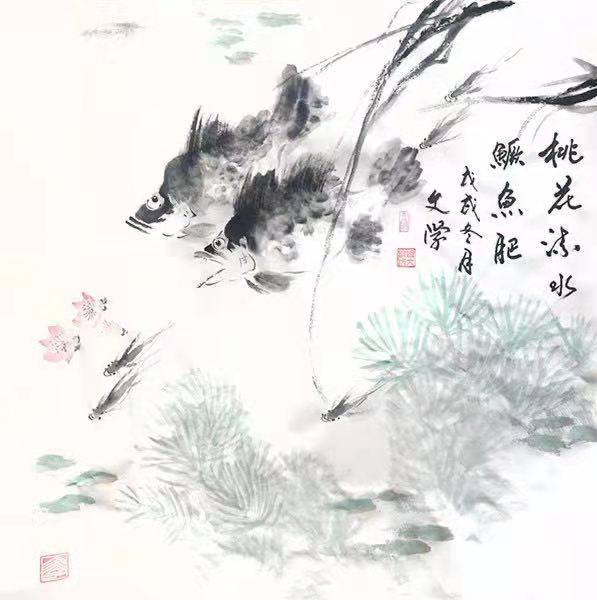 桃花流水
鱖魚肥
戊戌冬月
文学